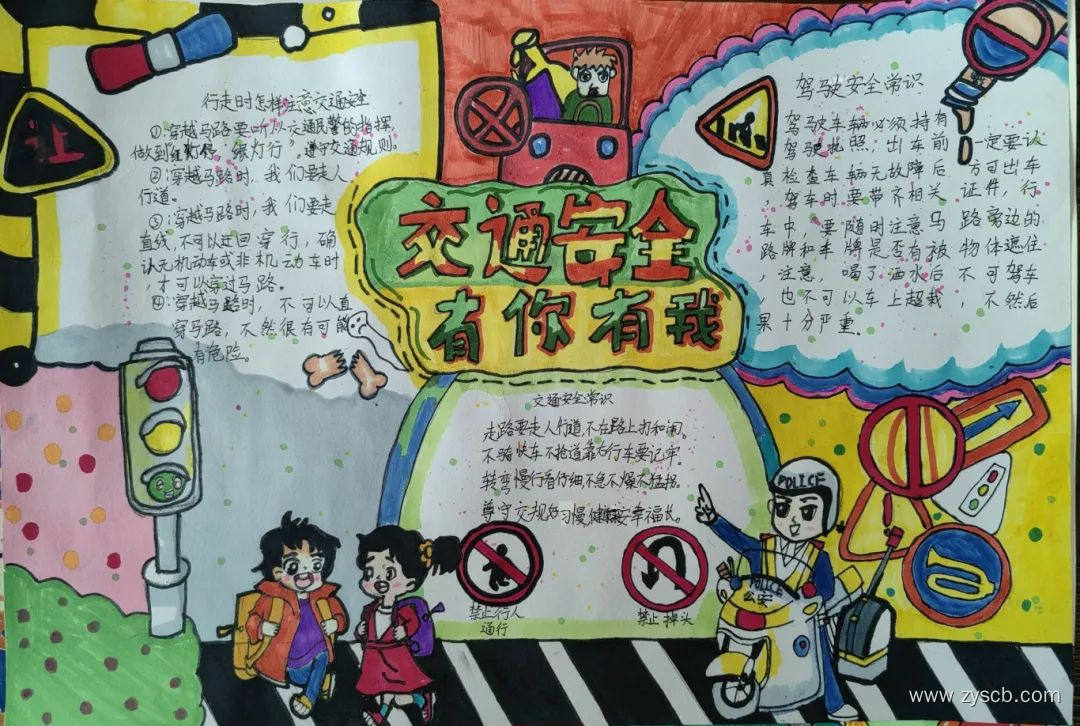 让
行走时怎样注意交通安全
①:穿越马路要听从交通民警的指挥,
做到“红灯停,绿灯行”。遵守交通规则。
②:穿越马路时,我们要走人
行道。
③:穿越马路时,我们要走
直线,不可以迂回穿行,确
认无机动车或非机动车时
,才可以穿过马路。
④:穿越马路时,不可以直
穿马路,不然很有可能
有危险。
交通安全
有你有我
驾驶安全常识
驾驶车辆必须持有
驾驶执照,出车前一定要认
真检查车辆无故障后方可出车
,驾车时要带齐相关证件,行
车中,要随时注意马路旁边的
路牌和车牌是否有被物体遮住
,注意,喝了酒水后不可驾车
,也不可以车上超载,不然后
果十分严重。
交通安全常识
走路要走人行道,不在路上打和闹。
不骑快车不抢道靠右行车要记牢。
转弯慢行看仔细不急不躁不猛拐。
尊守交规好习惯健安幸福长。
禁止行人
通行
禁止掉头
POLICE
POLICE
公安
www.zyscb.com